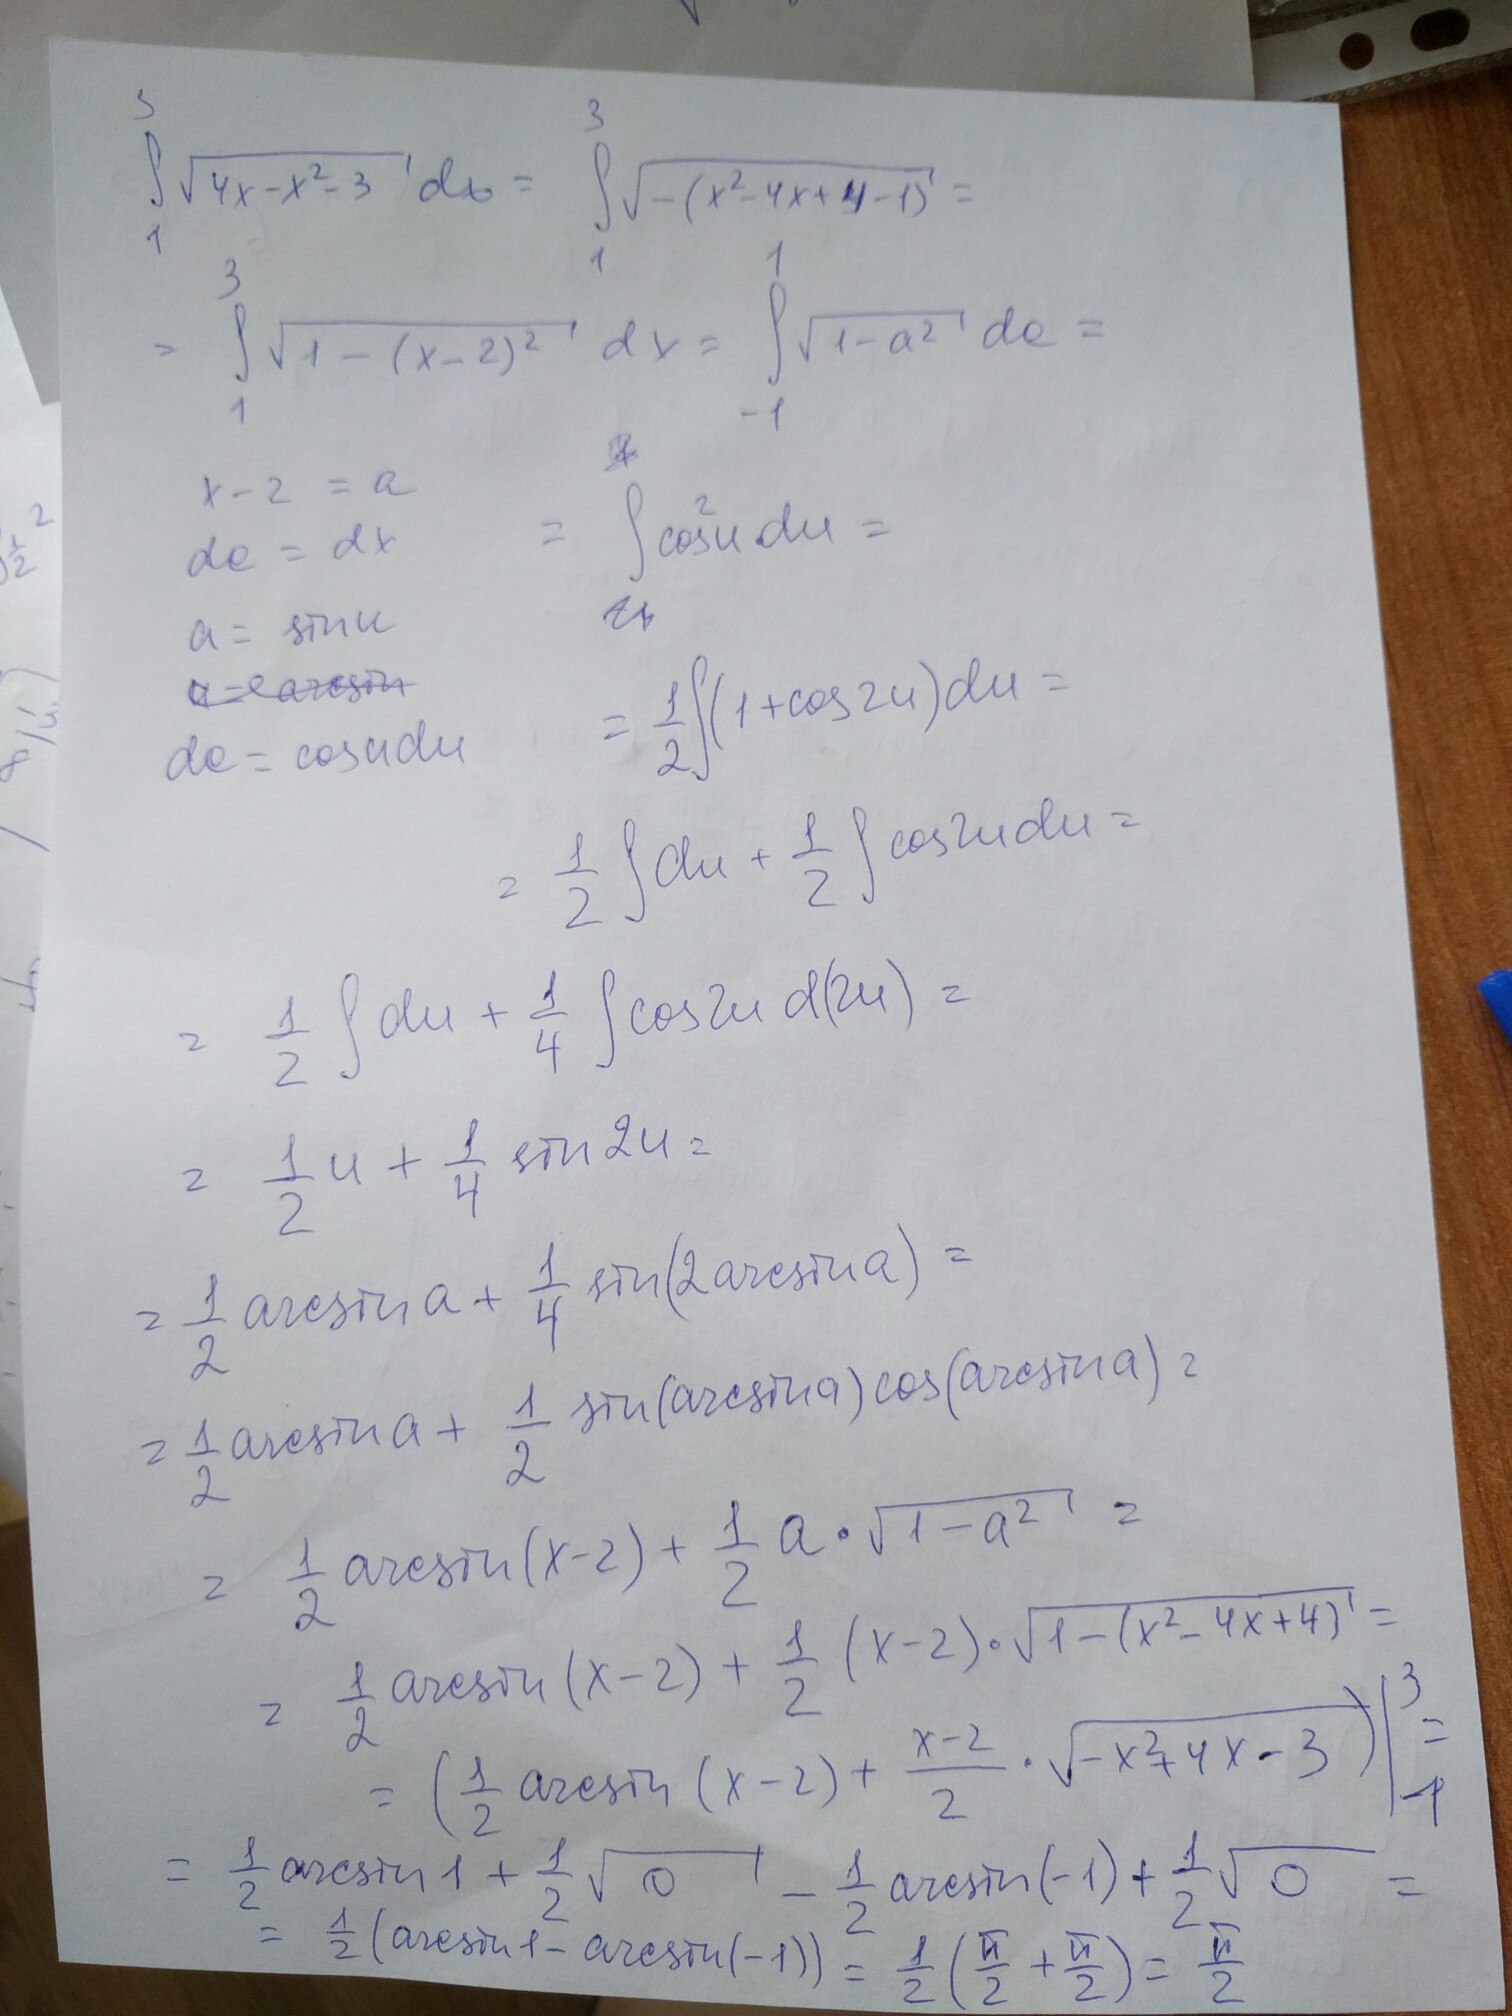 ∫₁³ √(4x-x²-3) dx = ∫₁³ √(-(x²-4x+4-1)) =
= ∫₁³ √(1-(x-2)²) dx = ∫₋₁¹ √(1-a²) da =
x-2 = a
da = dx
a = sin u
da = cos u du
= ∫ cos²u du =
= 1/2 ∫(1+cos2u)du =
= 1/2 ∫ du + 1/2 ∫ cos2u du =
= 1/2 ∫ du + 1/4 ∫ cos2u d(2u) =
= 1/2 u + 1/4 sin 2u =
= 1/2 arcsin a + 1/4 sin(2arcsin a) =
= 1/2 arcsin a + 1/2 sin(arcsin a) cos(arcsin a) =
= 1/2 arcsin(x-2) + 1/2 a · √(1-a²) =
= 1/2 arcsin(x-2) + 1/2 (x-2) · √(1-(x²-4x+4)) =
= (1/2 arcsin(x-2) + (x-2)/2 · √(-x²+4x-3)) |₁³ =
= 1/2 arcsin 1 + 1/2 √0 - 1/2 arcsin(-1) + 1/2 √0 =
= 1/2 (arcsin 1 - arcsin(-1)) = 1/2 (π/2 + π/2) = π/2